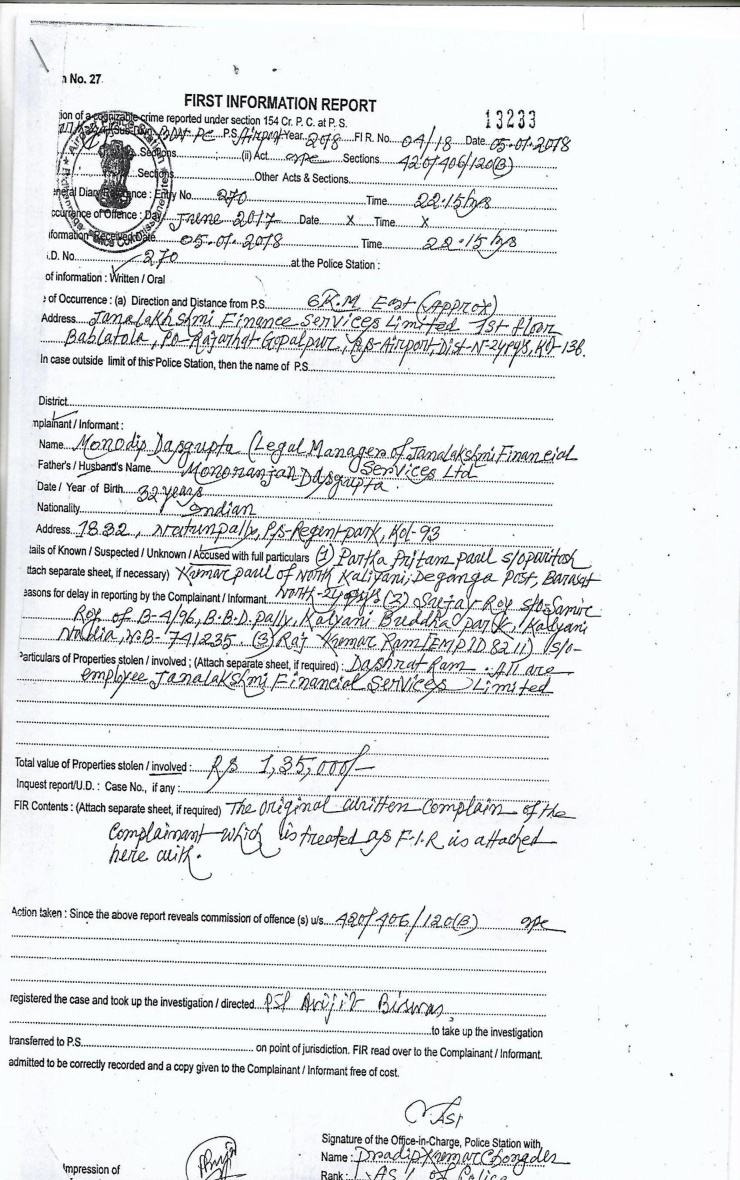 n No. 27
FIRST INFORMATION REPORT
13233
ion of a cognizable crime reported under section 154 Cr. P. C. at P. S.
P.S. Airport Year 2018 FIR. No. 04/18 Date 05.01.2018
Sections (ii) Act IPC Sections 420/406/120(B)
Sections Other Acts & Sections
eneral Diary Reference : Entry No. 270 Time 22.15 hrs
ccurrence of Offence : Day June 2017 Date. X Time X
nformation Received Date. 05.01.2018 Time 22.15 hrs
.D. No. 270 at the Police Station :
of information : Written / Oral
e of Occurrence : (a) Direction and Distance from P.S. 6 K.M East (Approx)
Address Janalakhshmi Finance Services Limited 1st floor
Bablatola, Po-Rajarhat Gopalpur, P.S-Airport, Dist-N-24pgs, Kol-136.
In case outside limit of this Police Station, then the name of P.S.
District
mplainant / Informant :
Name Monodip Dasgupta (Legal Manager of Janalakshmi Financial
Services Ltd
Father's / Husband's Name Monoranjan Dasgupta.
Date / Year of Birth 32 years
Nationality Indian
Address 1832, Natunpally, P/S-Regent park, Kol-93
tails of Known / Suspected / Unknown / Accused with full particulars (1) Partha Pritam paul s/o paritosh
ttach separate sheet, if necessary) Kumar paul of North Kaliyani, Deganga Post, Barasat
North-24pgs (2) Sanjay Roy s/o Samir
easons for delay in reporting by the Complainant / Informant
Roy of B-4/96, B.B.D. pally, Kalyani Buddha park, Kalyani
Nadia, W.B-741235 (3) Raj Kumar Ram [EMP ID 8211) s/o-
Particulars of Properties stolen / involved ; (Attach separate sheet, if required) : Dashrat Ram. All are
employee Janalakshmi Financial Services Limited
Total value of Properties stolen / involved : RS 1,35,000/-
Inquest report/U.D. : Case No., if any :
FIR Contents : (Attach separate sheet, if required) The original written Complain of the
Complainant which is treated as F.I.R is attached
here with.
Action taken : Since the above report reveals commission of offence (s) u/s 420/406/120(B) IPC
registered the case and took up the investigation / directed PSI Avijit Biswas,
to take up the investigation
transferred to P.S. on point of jurisdiction. FIR read over to the Complainant / Informant.
admitted to be correctly recorded and a copy given to the Complainant / Informant free of cost.
ASI
Signature of the Office-in-Charge, Police Station with,
Name : Pradip Kumar Chongder
Impression of
Rank : ASI of Police